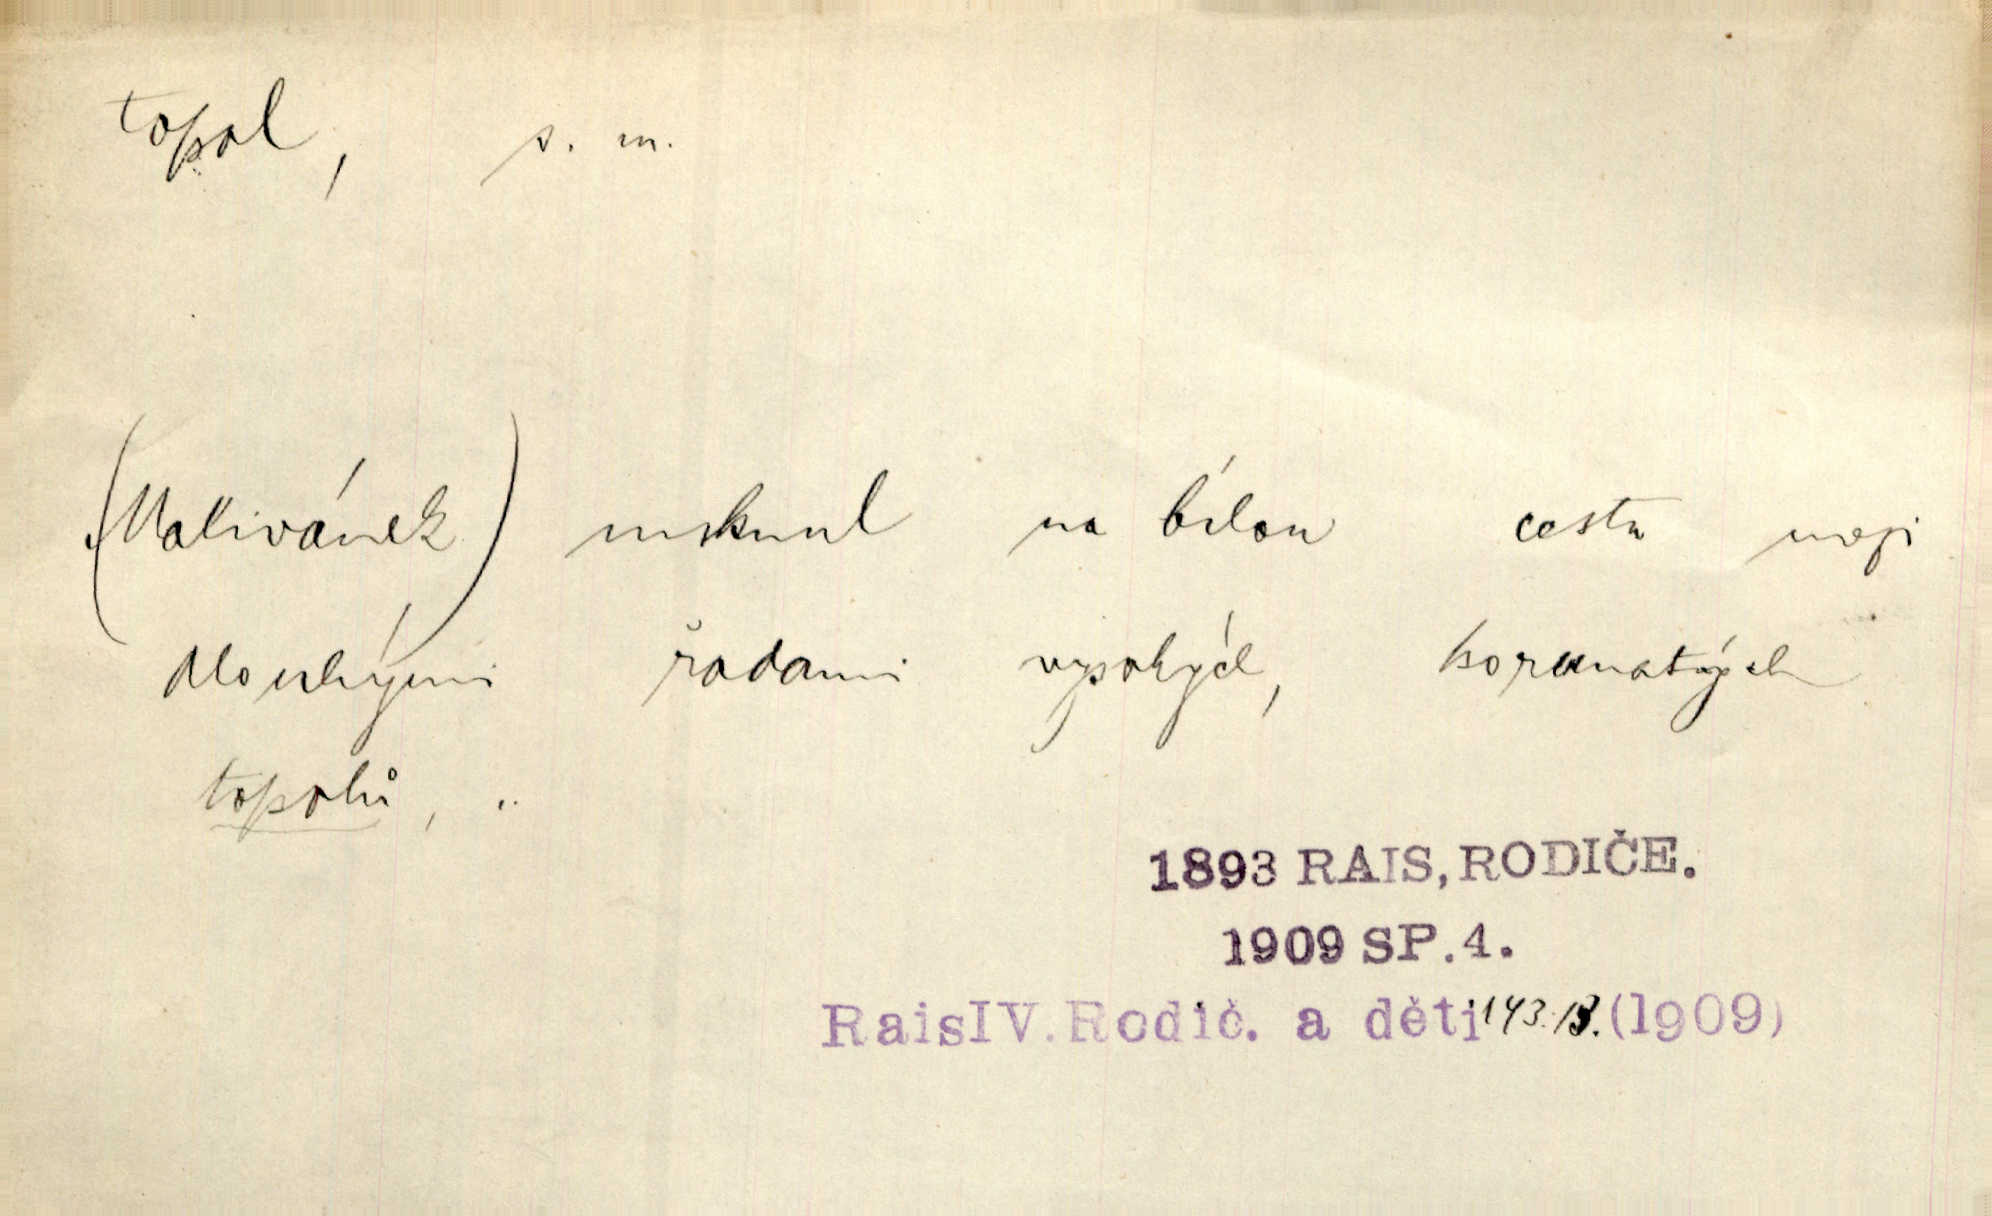 topol, s. m.
(Malivánek) mrknul na bílou cestu mezi
dlouhými řadami vysokých, korunatých
topolů, ..
1893 RAIS, RODIČE.
1909 SP. 4.
RaisIV. Rodič. a děti 143. 13. (1909)